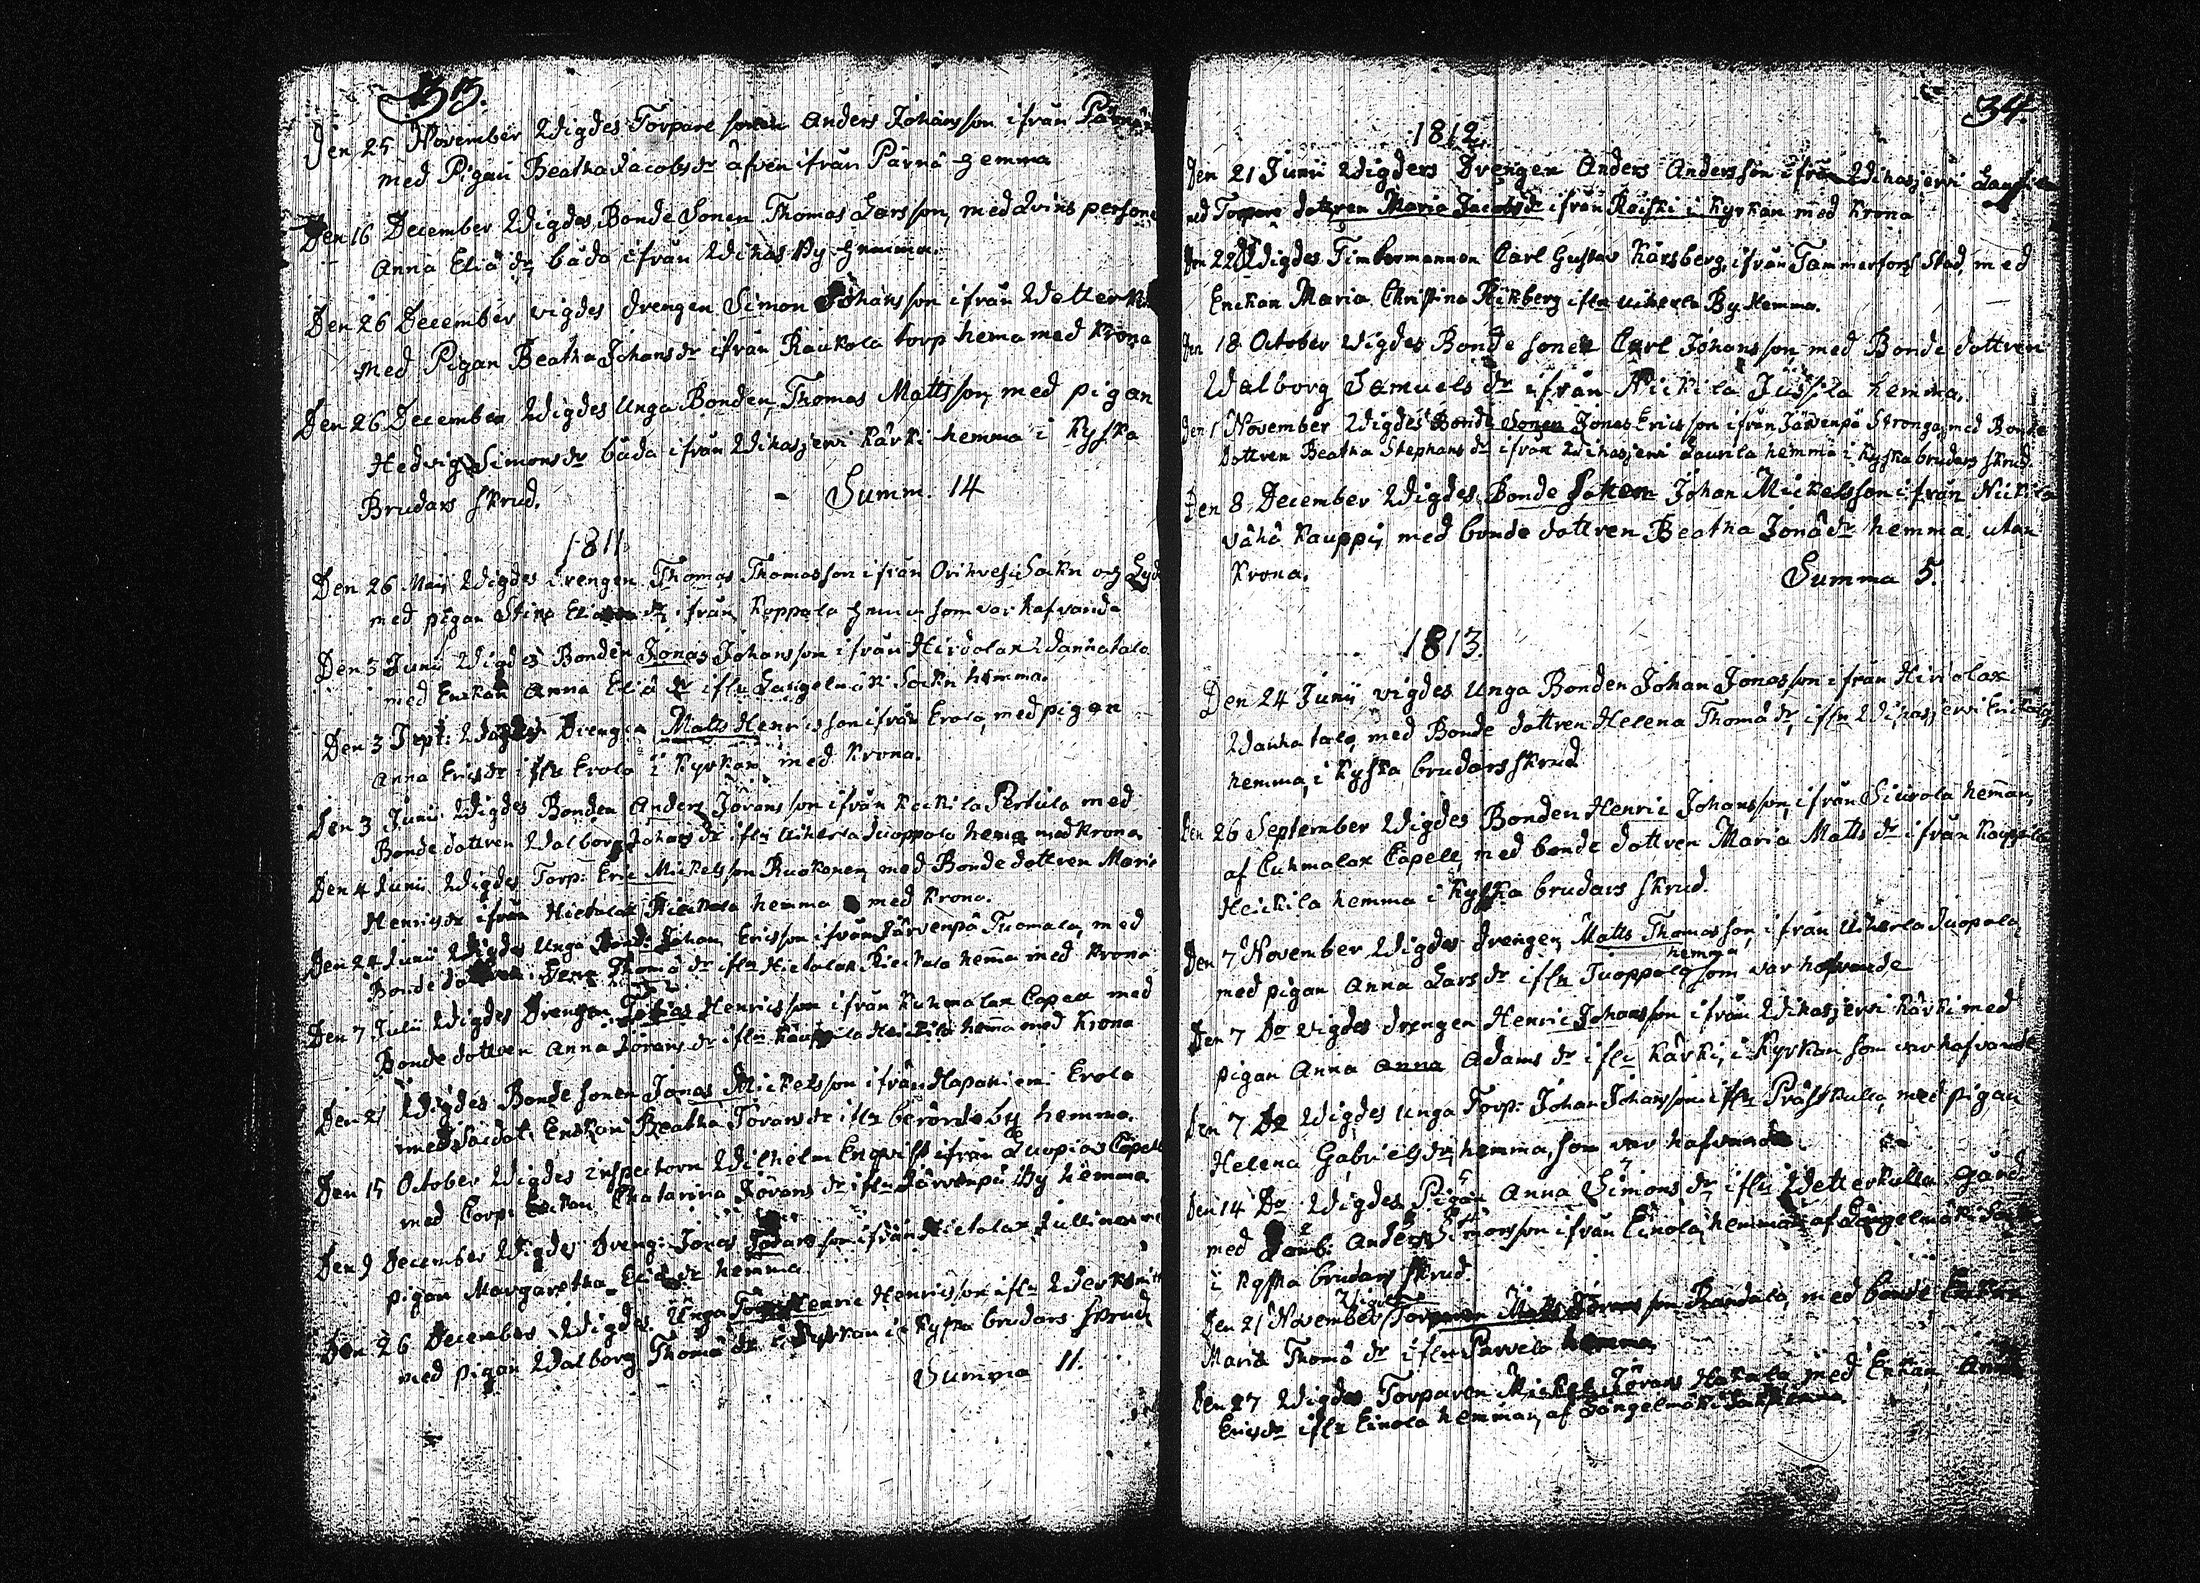 33.
Den 25 November Wigdes Torpare sonen Anders Johansson ifrån
med Pigan Beatha Jacobsdr äfven ifrån Pärnä hemma
Den 16 December Wigdes Bonde Sonen Thomas Larsson, med Qvins person
Anna Eliä dr, båda ifrån Wihas By hemma.
Den 26 December vigdes drengen Simon Johansson ifrån
med Pigan Beatha Johansdr ifrån Raukola torp hema med Krona
Den 26 December Wigdes Unga Bonden, Thomas Mattsson, med pigan
Hedvig Simonsdr båda ifrån Wihasjerwi Kärki hemma i Kyska
Brudars skrud. - Summ. 14
1811
Den 26 Maij Wigdes drengen Thomas Thomasson ifrån Orihvesi Sokn
med pigan Stina dr ifrån Koppala som var hafvande
Den 3 Junii Wigdes Bonden Jonas Johansson ifrån Hirdolax
med Enckan Anna Eliä dr ifln Långelmäki Sockn hemma.
Den 3 Sept: Wigdes Drengen Matts Henricsson ifrån Erola, med pigan
Anna Ericsdr ifln Erola i Kyrkan med Krona.
Den 3 Junii Wigdes Bonden Anders Jöransson ifrån Pertula med
Bonde dottren Walborg Johans dr ifln Uiherla Juoppala hema med Krona
Den 4 Junii Wigdes Torp: Eric Mickelsson Ruokonen, med Bonde dottren Maria
Henricsdr ifrån Hietalax hemma med Krona.
Den 24 Junii Wigdes Unga Johan Ericsson ifrån Järvenpä Tuomala, med
Bonde Thomä dr ifln Hietalax hema med Krona
Den 7 Julii Wigdes Drengen Tobias Henricsson ifrån Kuhmalax Capell med
Bonde dottren Anna Jörans dr ifln Heickilä hema med Krona
Den 21 Wigdes Bonde sonen Jonas Mickelsson ifrån Hapaniemi Erola
med Soldat: Enckan Beatha Jöransdr ifln berörde by hemma.
Den 15 October Wigdes inspectorn Wilhelm Enqvist ifrån Luopiois Capell
med Corp: Enckan Chatarina Jörans dr ifln Järvenpä By hemma
Den 9 December Wigdes Dreng: Jonas ifrån Hietalax
pigan Margaretha Eliä dr hemma
Den 26 December Wigdes Unga Henric Henricsson ifln
med pigan Walborg Thomä dr i Kyrkan i Kyska brudars skrud
Summa 11.
34.
1812.
Den 21 Junii Wigders Drengen Anders Andersson ifrån Wihasjerwi
med Torpare dottren Maria Jacobsdr ifrån Roiski i Kyrkan med Krona
Den 22 Wigdes Timbermannen Carl Gustav Kärsberg, ifrån Tammerfors Stad, med
Enckan Maria Christina Rikberg ifln Uiherla By Hemma.
Den 18 October Wigdes Bonde sonen Carl Johansson, med Bonde dottren
Walborg Samuels dr ifrån Nickila Jussila hemma.
Den 1 November Wigdes Bonde Sonen Jonas Ericsson ifrån Järvenpä Stronga, med Bonde
Dottren Beatha Stephans dr ifrån Wihasjerwi Laurila hemma i Kyska brudars skrud.
Den 8 December Wigdes Bonde Sonen Johan Mickelsson ifrån Nickila
Vähä Kauppi, med bonde dottren Beatha Jonädr hemma, utan
Krona. Summa 5.
1813.
Den 24 Junii vigdes Unga Bonden Johan Jonasson ifrån Hirdolax
med Bonde dottren Helena Thomä dr, ifln Wihasjerwi
hemma, i Kyska brudars skrud
Den 26 September Wigdes Bonden Henric Johansson, ifrån Siurola heman,
af Cuhmalax Capell, med bonde dottren Maria Matts dr ifrån
Heickila hemma i Kyska brudars skrud.
Den 7 November Wigdes drengen Matts Thomasson, ifrån Uiherla Juopala,
med pigan Anna Lars dr ifln Juoppala hemma som var hafvande
Den 7 Do vigdes drengen Henric Johansson ifrån Wihasjerwi Kärki med
pigan Anna Anna Adams dr ifln Kärki, i Kyrkan som var hafvande
Den 7 Do Wigdes Unga Torp: Johan Johansson ifln Prästkulla, med pigan
Helena Gabrielsdr, hemma, som var hafvande
Den 14 Do Wigdes Pigan Anna Simons dr, ifln Wetterkulla Gård
med Anders Simonsson ifrån Einola, hemman af Längelmäki
i Kyska brudars skrud
Den 21 November Wigdes Torparen Matts Jöransson Randala, med
Maria Thomä dr ifln Parvela hemma
Den 27 Wigdes Torparen Mickel Jörans med Enkan Anna
Ericsdr ifln Einola hemman, af Längelmäki